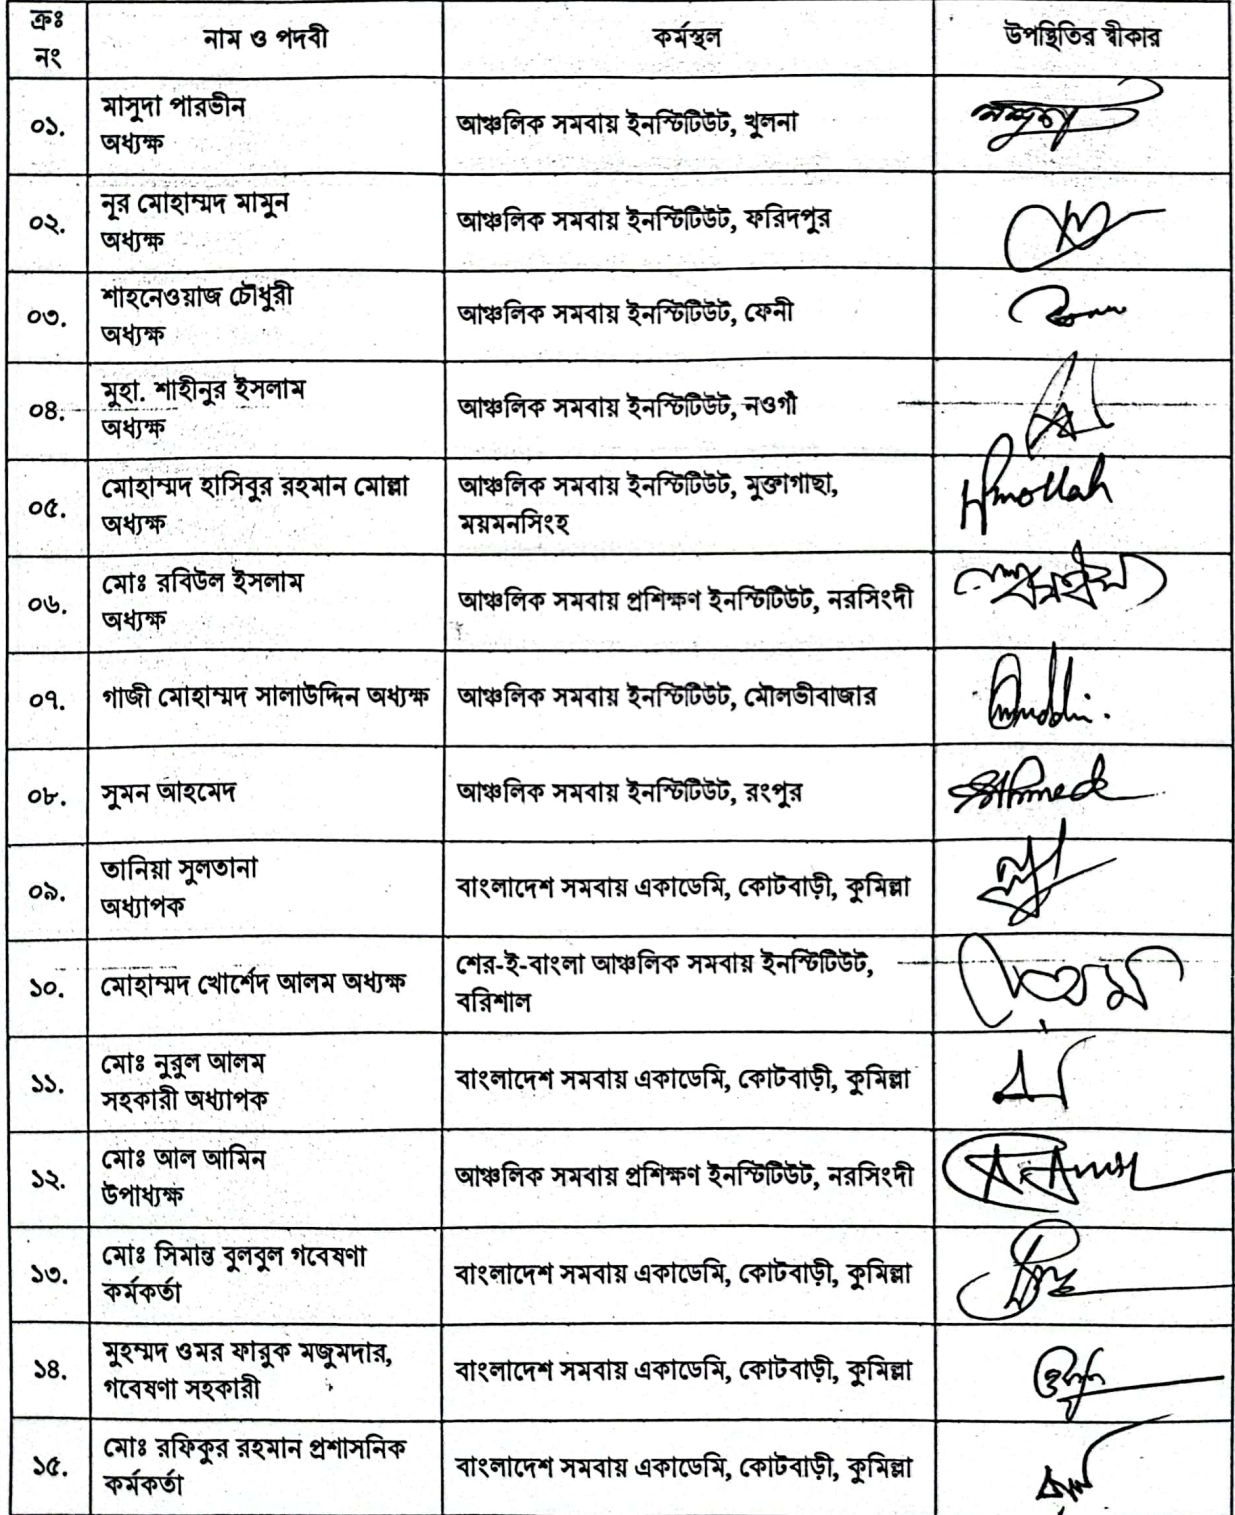 ক্রঃ নং	নাম ও পদবী	কর্মস্থল	উপস্থিতির স্বীকার
০১.	মাসুদা পারভীন
অধ্যক্ষ	আঞ্চলিক সমবায় ইনস্টিটিউট, খুলনা
০২.	নূর মোহাম্মদ মামুন
অধ্যক্ষ	আঞ্চলিক সমবায় ইনস্টিটিউট, ফরিদপুর
০৩.	শাহনেওয়াজ চৌধুরী
অধ্যক্ষ	আঞ্চলিক সমবায় ইনস্টিটিউট, ফেনী
০৪.	মুহা. শাহীনুর ইসলাম
অধ্যক্ষ	আঞ্চলিক সমবায় ইনস্টিটিউট, নওগাঁ
০৫.	মোহাম্মদ হাসিবুর রহমান মোল্লা
অধ্যক্ষ	আঞ্চলিক সমবায় ইনস্টিটিউট, মুক্তাগাছা,
ময়মনসিংহ	Hmollah
০৬.	মোঃ রবিউল ইসলাম
অধ্যক্ষ	আঞ্চলিক সমবায় প্রশিক্ষণ ইনস্টিটিউট, নরসিংদী
০৭.	গাজী মোহাম্মদ সালাউদ্দিন অধ্যক্ষ	আঞ্চলিক সমবায় ইনস্টিটিউট, মৌলভীবাজার
০৮.	সুমন আহমেদ	আঞ্চলিক সমবায় ইনস্টিটিউট, রংপুর	SAhmed
০৯.	তানিয়া সুলতানা
অধ্যাপক	বাংলাদেশ সমবায় একাডেমি, কোটবাড়ী, কুমিল্লা
১০.	মোহাম্মদ খোর্শেদ আলম অধ্যক্ষ	শের-ই-বাংলা আঞ্চলিক সমবায় ইনস্টিটিউট,
বরিশাল
১১.	মোঃ নুরুল আলম
সহকারী অধ্যাপক	বাংলাদেশ সমবায় একাডেমি, কোটবাড়ী, কুমিল্লা
১২.	মোঃ আল আমিন
উপাধ্যক্ষ	আঞ্চলিক সমবায় প্রশিক্ষণ ইনস্টিটিউট, নরসিংদী
১৩.	মোঃ সিমান্ত বুলবুল গবেষণা
কর্মকর্তা	বাংলাদেশ সমবায় একাডেমি, কোটবাড়ী, কুমিল্লা
১৪.	মুহম্মদ ওমর ফারুক মজুমদার,
গবেষণা সহকারী	বাংলাদেশ সমবায় একাডেমি, কোটবাড়ী, কুমিল্লা
১৫.	মোঃ রফিকুর রহমান প্রশাসনিক
কর্মকর্তা	বাংলাদেশ সমবায় একাডেমি, কোটবাড়ী, কুমিল্লা